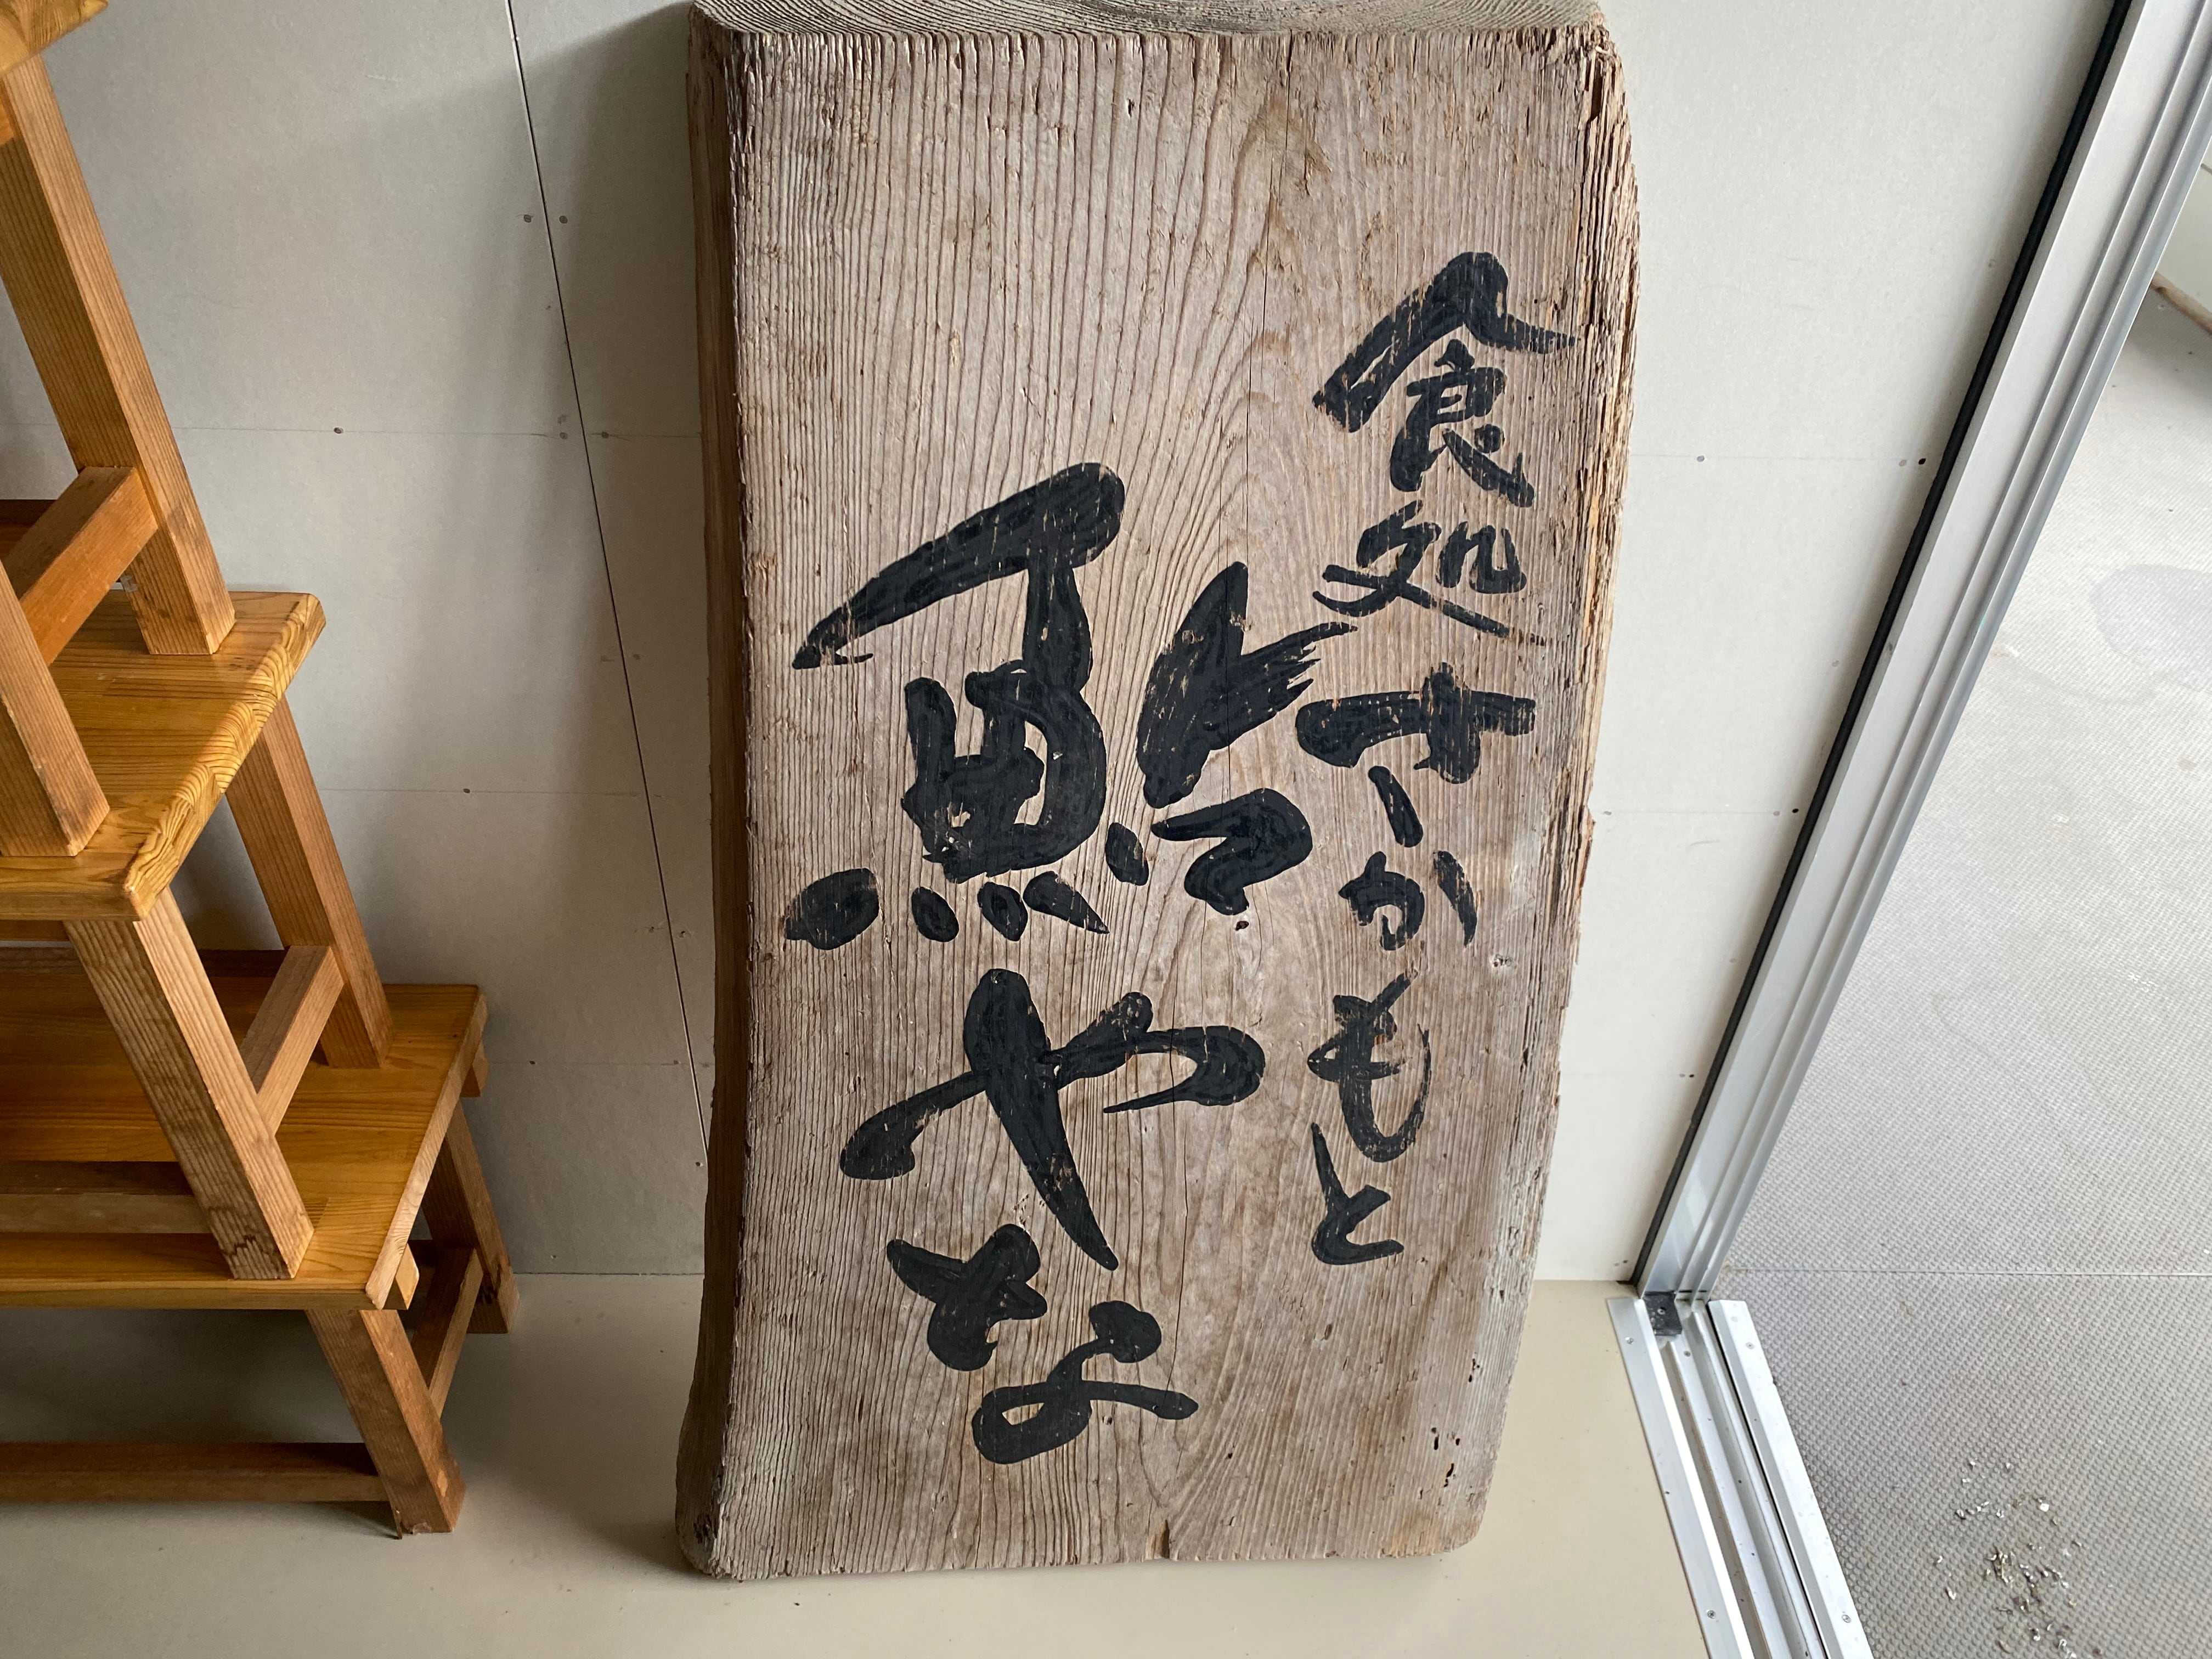 食処さかもと
鮎やな